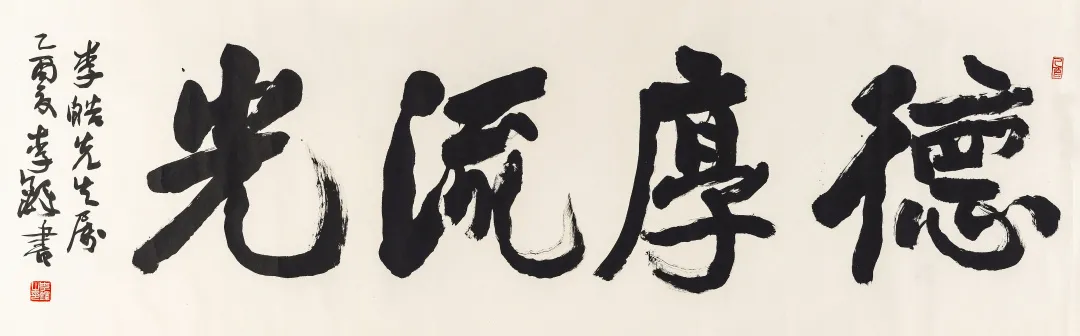 德厚流光
李皓先生属
乙酉夏李鐸書